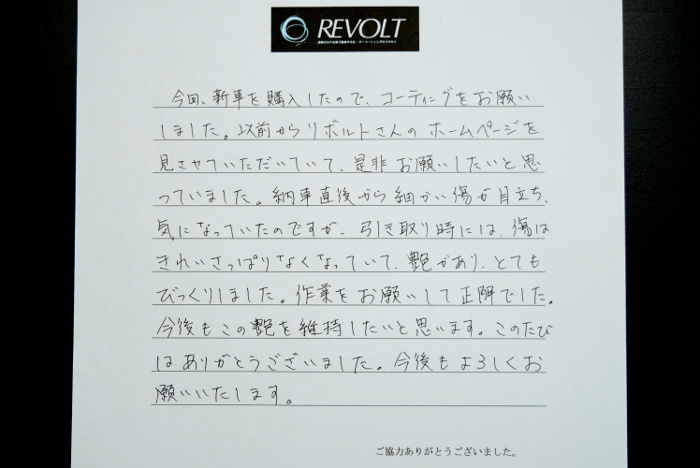 REVOLT
今回、新車を購入したので、コーティングをお願い
しました。以前からリボルトさんのホームページを
見させていただいていて、是非お願いしたいと思
っていました。納車直後から細かい傷が目立ち、
気になっていたのですが、引き取り時には、傷は
きれいさっぱりなくなっていて、艶があり、とても
びっくりしました。作業をお願いして正解でした。
今後もこの艶を維持したいと思います。このたび
はありがとうございました。今後もよろしくお
願いいたします。
ご協力ありがとうございました。